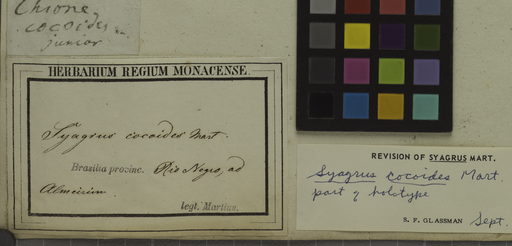 Chione
cocoides
junior
HERBARIUM REGIUM MONACENSE.
Syagrus cocoides Mart.
Brasilia provinc. Rio Negro, ad
Almeirim.
legt. Martius.
REVISION OF SYAGRUS MART.
Syagrus cocoides Mart.
part of holotype
S. F. GLASSMAN Sept.